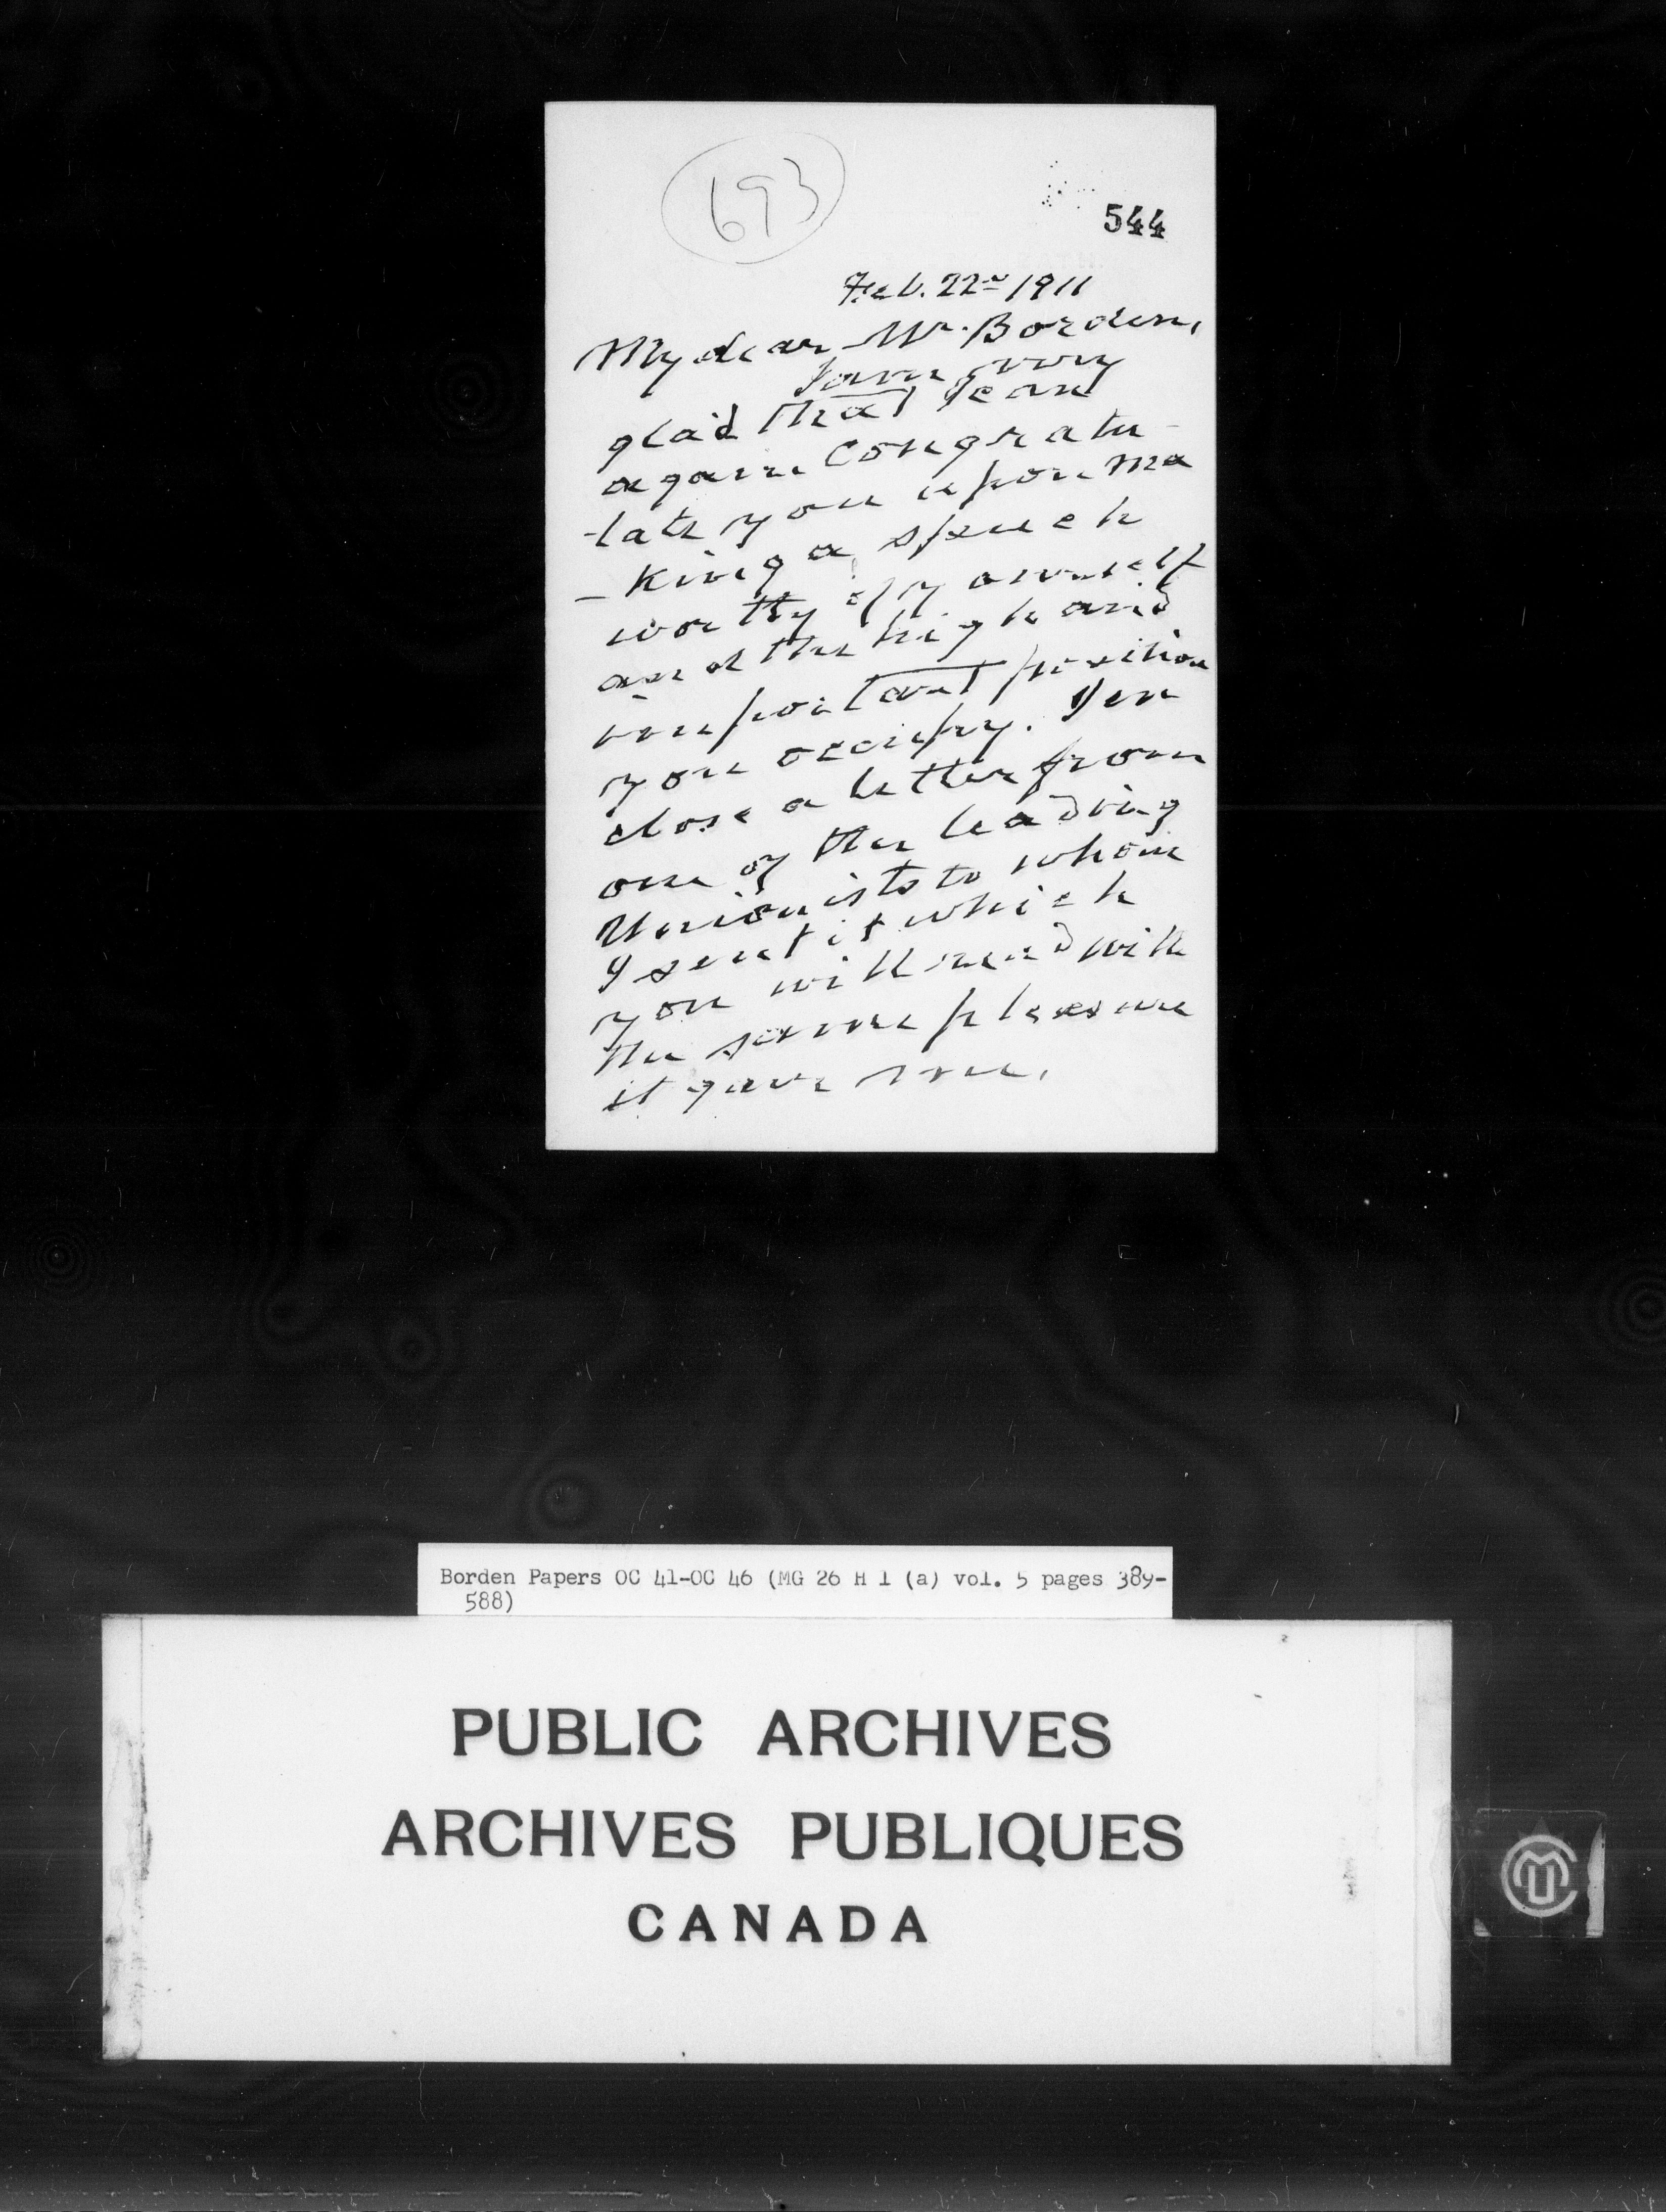 693
544
Feb. 22nd 1911
My dear Mr. Borden,
I am very
glad that I can
again Congratu-
-late you upon ma
-king a speech
worthy of yourself
and the high and
important position
you occupy. I en
close a letter from
one of the leading
Unionists to whom
I sent it which
you will read with
the same pleasure
it gave me.
Borden Papers OC 41-OC 46 (MG 26 H 1 (a) vol. 5 pages 389-
588)
PUBLIC ARCHIVES
ARCHIVES PUBLIQUES
CANADA